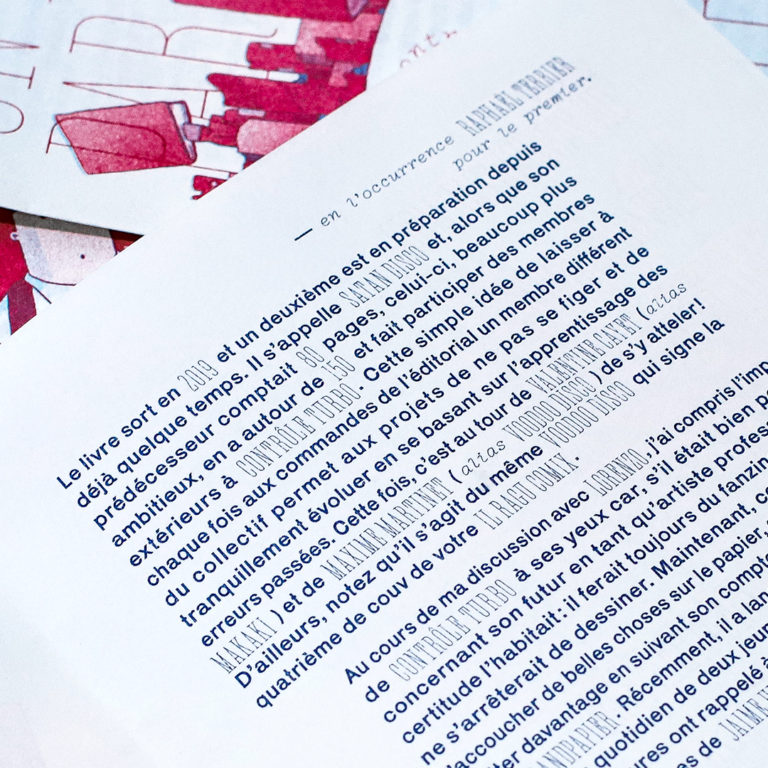 — en l'occurrence RAPHAEL TERRIER
pour le premier.
Le livre sort en 2019 et un deuxième est en préparation depuis
déjà quelque temps. Il s'appelle SATAN DISCO et, alors que son
prédécesseur comptait 80 pages, celui-ci, beaucoup plus
ambitieux, en a autour de 150 et fait participer des membres
extérieurs à CONTRÔLE TURBO. Cette simple idée de laisser à
chaque fois aux commandes de l'éditorial un membre différent
du collectif permet aux projets de ne pas se figer et de
tranquillement évoluer en se basant sur l'apprentissage des
erreurs passées. Cette fois, c'est au tour de VALENTINE GAYET (alias
MAKAKI) et de MAXIME MARTINET (alias VOODOO DISCO) de s'y atteler!
D'ailleurs, notez qu'il s'agit du même VOODOO DISCO qui signe la
quatrième de couv de votre IL RAGI COMIX.
Au cours de ma discussion avec LORENZO, j'ai compris l'imp
de CONTRÔLE TURBO à ses yeux car, s'il était bien p
concernant son futur en tant qu'artiste profes
certitude l'habitait: il ferait toujours du fanzin
ne s'arrêterait de dessiner. Maintenant, c
'accoucher de belles choses sur le papier,
ter davantage en suivant son compte
ANDPAPIER. Récemment, il a lan
quotidien de deux jeu
ures ont rappelé à
es de JAIME